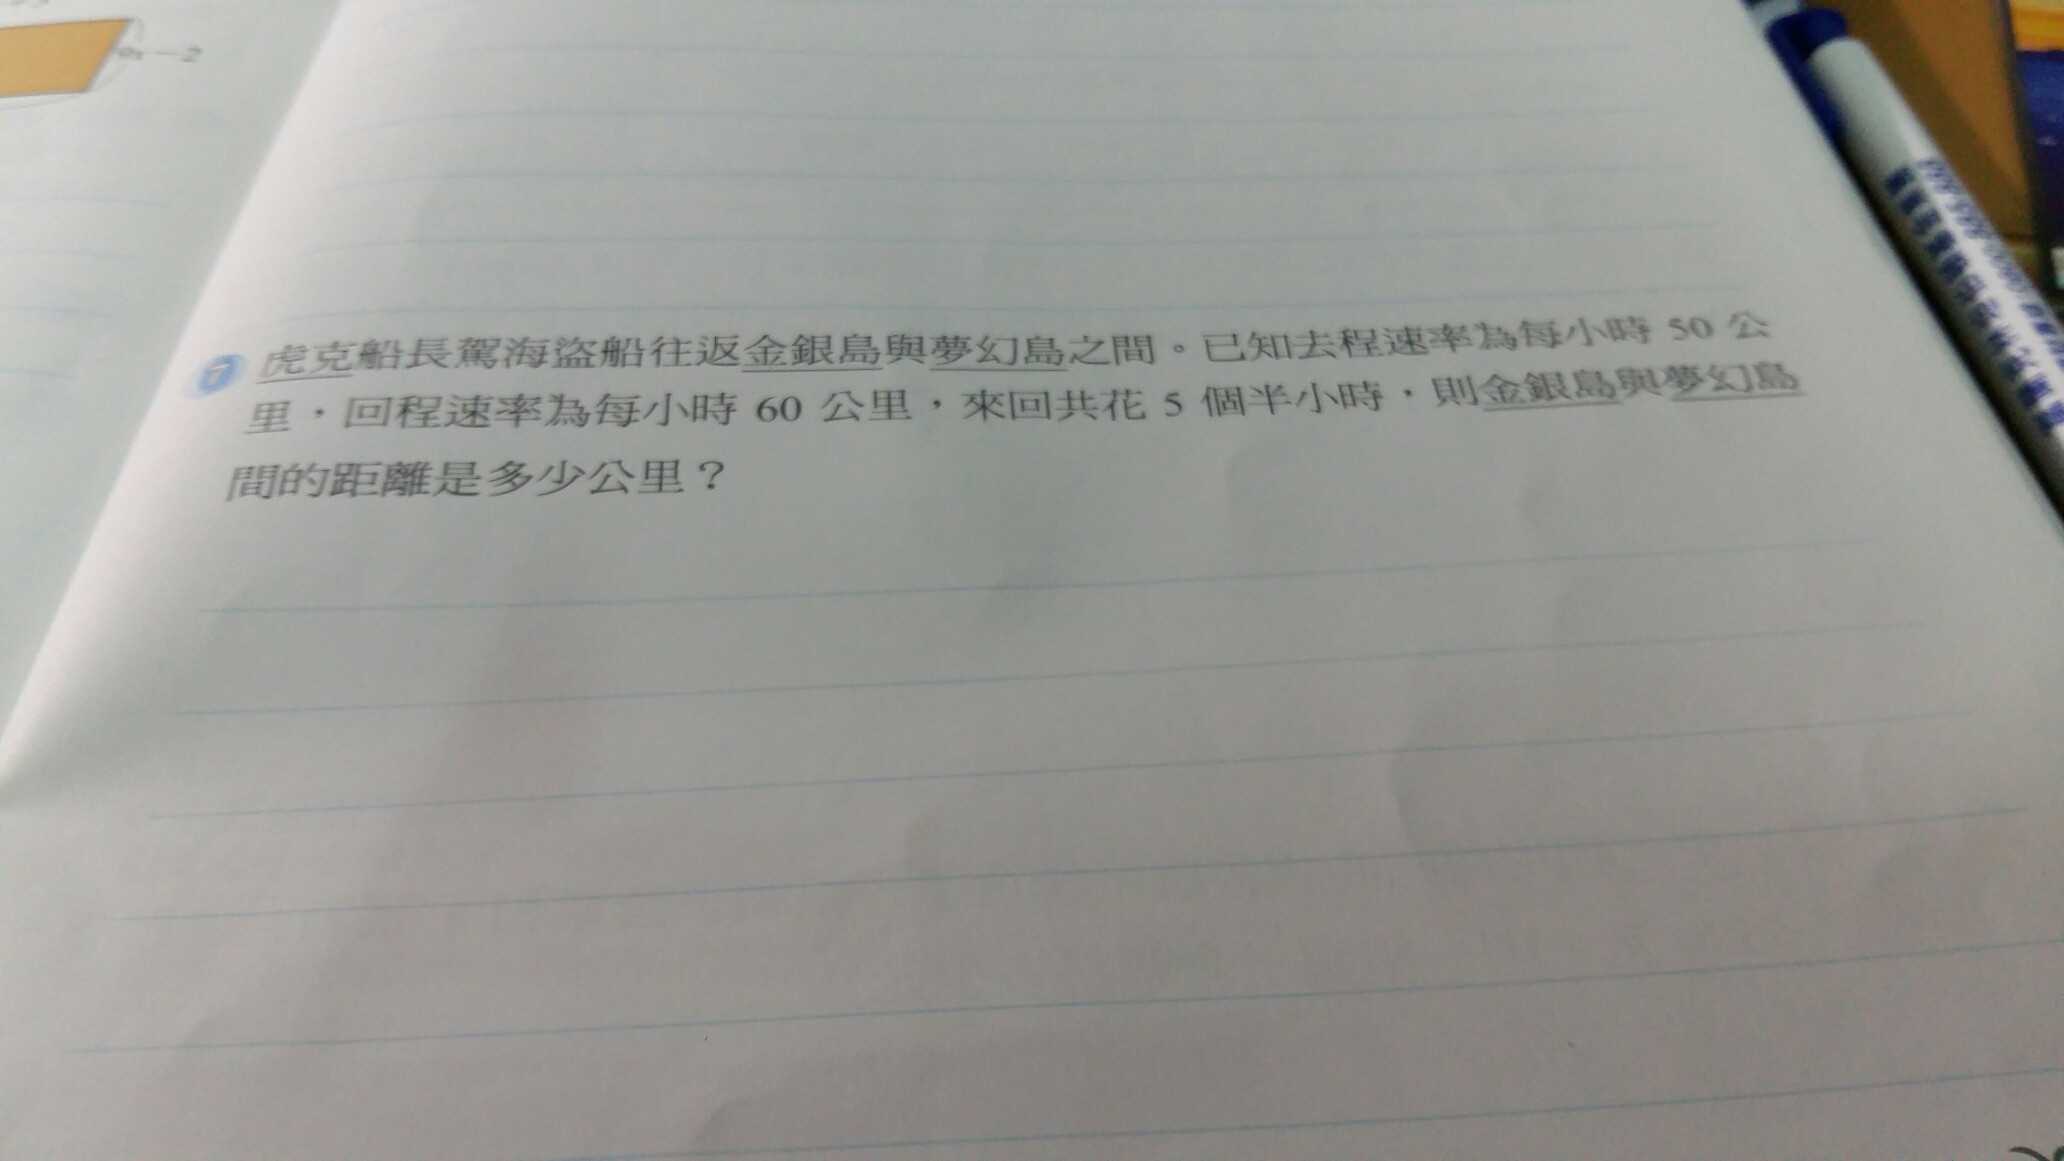 x－2
7 虎克船長駕海盜船往返金銀島與夢幻島之間。已知去程速率為每小時 50 公
里，回程速率為每小時 60 公里，來回共花 5 個半小時，則金銀島與夢幻島
間的距離是多少公里？